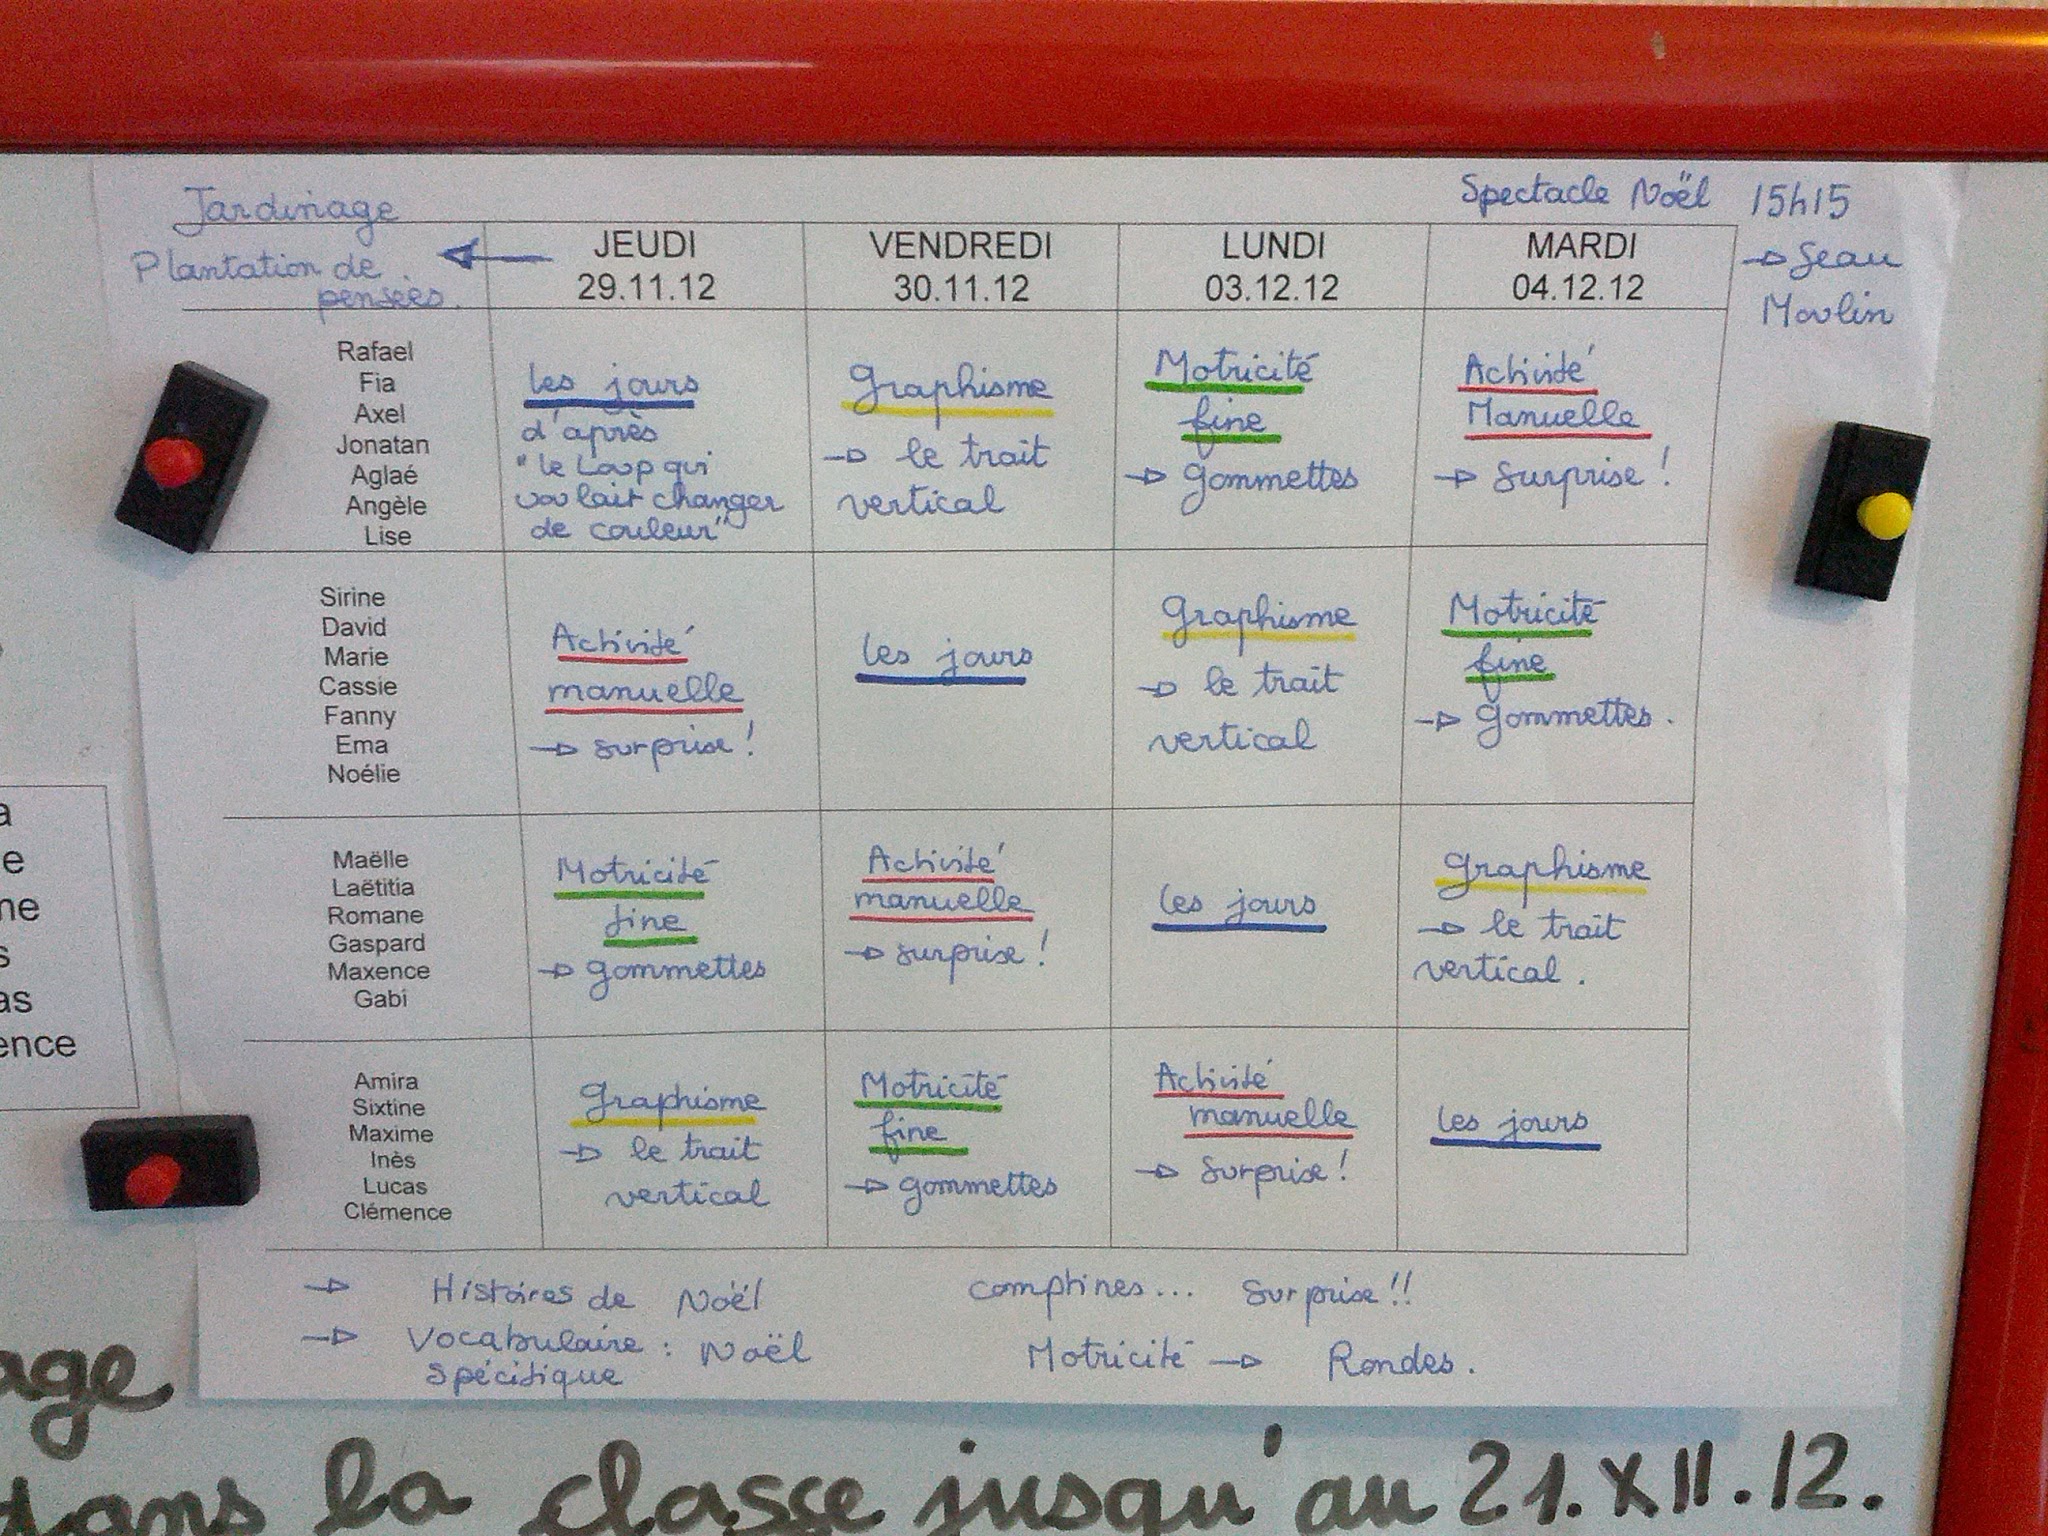 Jardinage
Spectacle Noël 15h15
Plantation de
pensées.
JEUDI
29.11.12
VENDREDI
30.11.12
LUNDI
03.12.12
MARDI
04.12.12
Moulin
Rafael
Fia
Axel
Jonatan
Aglaé
Angèle
Lise
les jours
d'après
"le Loup qui
voulait changer
de couleur"
Graphisme
→ le trait
vertical
Motricité
fine
→ gommettes
Activité
Manuelle
→ Surprise !
Sirine
David
Marie
Cassie
Fanny
Ema
Noélie
Activité
manuelle
→ surprise !
les jours
Graphisme
→ le trait
vertical
Motricité
fine
→ gommettes.
Maëlle
Laëtitia
Romane
Gaspard
Maxence
Gabi
Motricité
fine
→ gommettes
Activité
manuelle
→ surprise !
les jours
Graphisme
→ le trait
vertical.
Amira
Sixtine
Maxime
Inès
Lucas
Clémence
Graphisme
→ le trait
vertical
Motricité
fine
→ gommettes
Activité
manuelle
→ Surprise !
les jours
→ Histoires de Noël comptines... Surprise !!
→ Vocabulaire : Noël Motricité → Rondes.
Spécifique
dans la classe jusqu'au 21.XII.12.